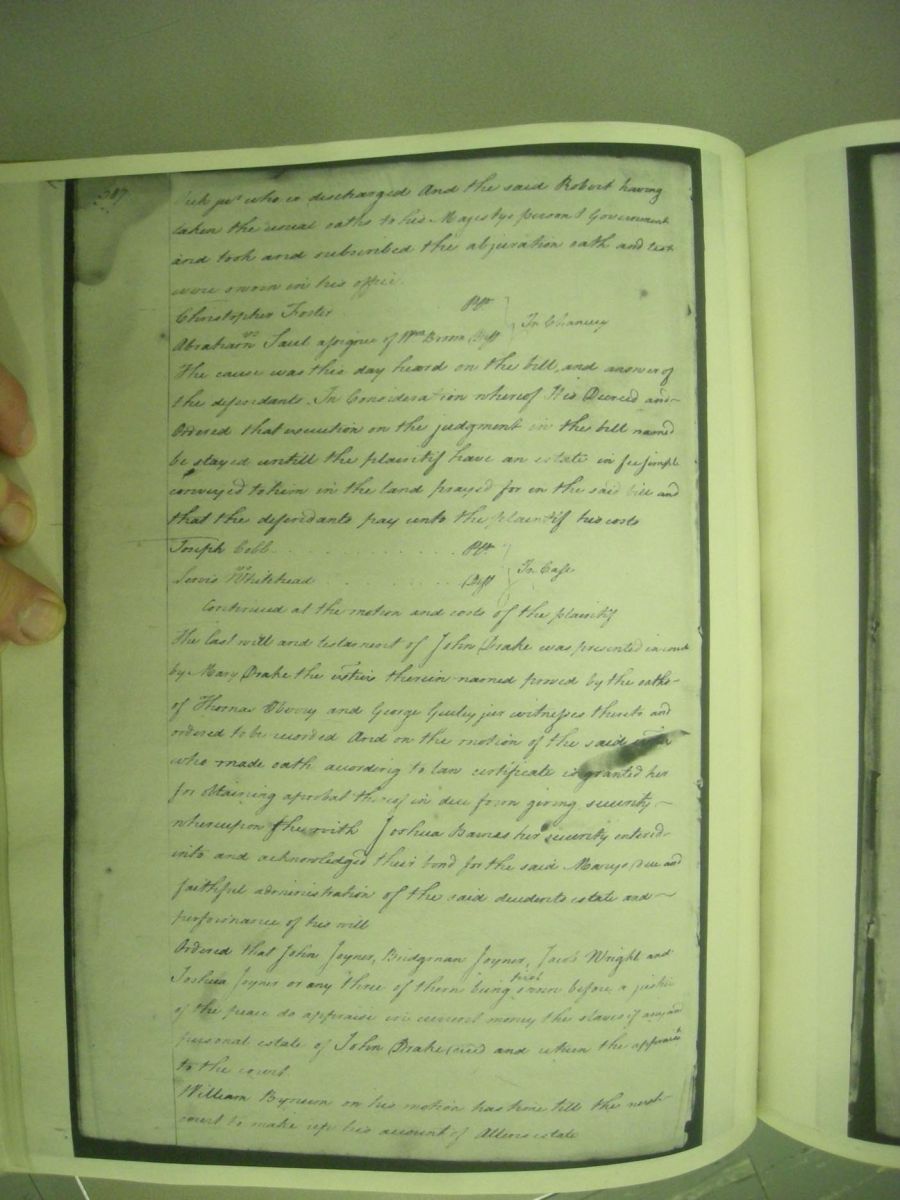 387
who is discharged And the said Robert having
taken the usual oaths to his Majestys person & Government
and took and subscribed the abjuration oath and test
were sworn in his office
Christopher Foster Plt
vs In Chancery
Abraham Saul assignee of Wm Brown Deft
The cause was this day heard on the bill, and answer of
the defendants. In Consideration whereof It is Decreed and
Ordered that execution on the judgment in the bill named
be stayed untill the plaintif have an estate in fee simple
conveyed to him in the land prayed for in the said bill and
that the defendants pay unto the plaintif his costs
Joseph Cobb Plt
vs In Case
Whitehead Deft
Continued at the motion and costs of the plaintif
The last will and testament of John Drake was presented in court
by Mary Drake the therein named proved by the oaths
of Thomas and George jur witnesses thereto and
ordered to be recorded And on the motion of the said
who made oath according to law certificate is granted her
for obtaining a probat thereof in due form giving security
whereupon she with Joshua her security entered
into and acknowledged their bond for the said Marys due and
faithful administration of the said decedents estate and
performance of his will
Ordered that John Joyner, Bridgman Joyner, Jacob Wright and
Joshua Joyner or any three of them being first sworn before a justice
of the peace do appraise in current money the slaves if any and
personal estate of John Drake decd and return the
to the court.
William Bynum on his motion has time till the next
court to make up his account of Allens estate